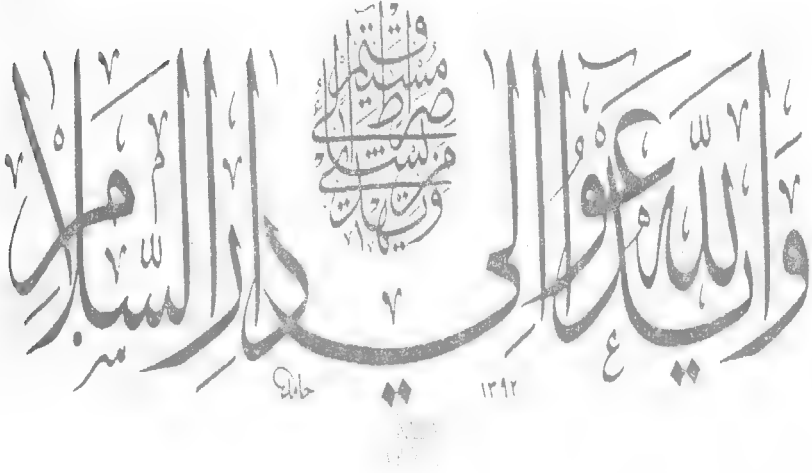 وَاللّٰهُ يَدْعُوا إِلٰى دَارِ السَّلَامِ
وَيَهْدِي مَنْ يَشَاءُ إِلٰى صِرَاطٍ مُسْتَقِيمٍ
حامد
١٣٩٢